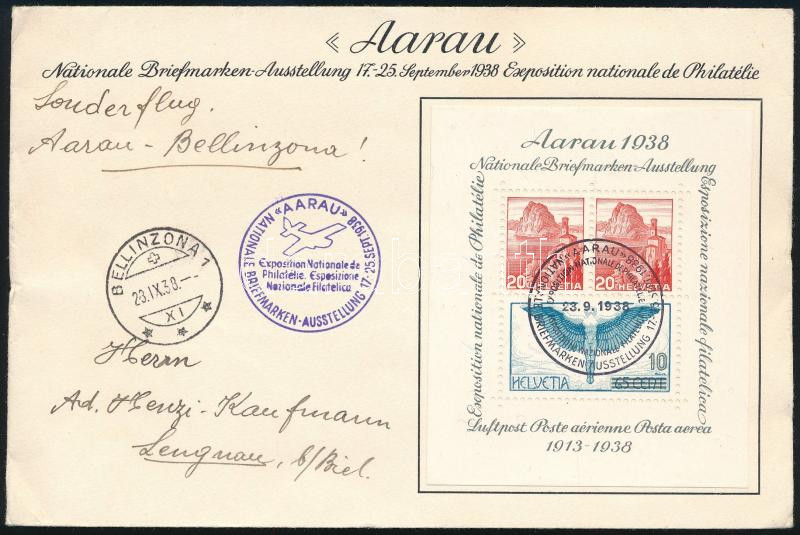 « Aarau »
Nationale Briefmarken-Ausstellung 17.-25. September 1938 Exposition nationale de Philatélie
Sonderflug.
Aarau - Bellinzona!
BELLINZONA 1
28.IX.38.-
XI
«AARAU»
NATIONALE BRIEFMARKEN-AUSSTELLUNG 17-25.SEPT.1938
Exposition Nationale de
Philatélie. Esposizione
Nazionale Filatelica
Herrn
Ad. Henzi-Kaufmann
Lengnau, b/Biel.
Aarau 1938
Nationale Briefmarken-Ausstellung
Exposition nationale de Philatélie
Esposizione nazionale filatelica
20 HELVETIA
20 HELVETIA
«AARAU»
23.9.1938
BRIEFMARKEN-AUSSTELLUNG 17-
10
HELVETIA 65 CENT
Luftpost Poste aérienne Posta aerea
1913-1938